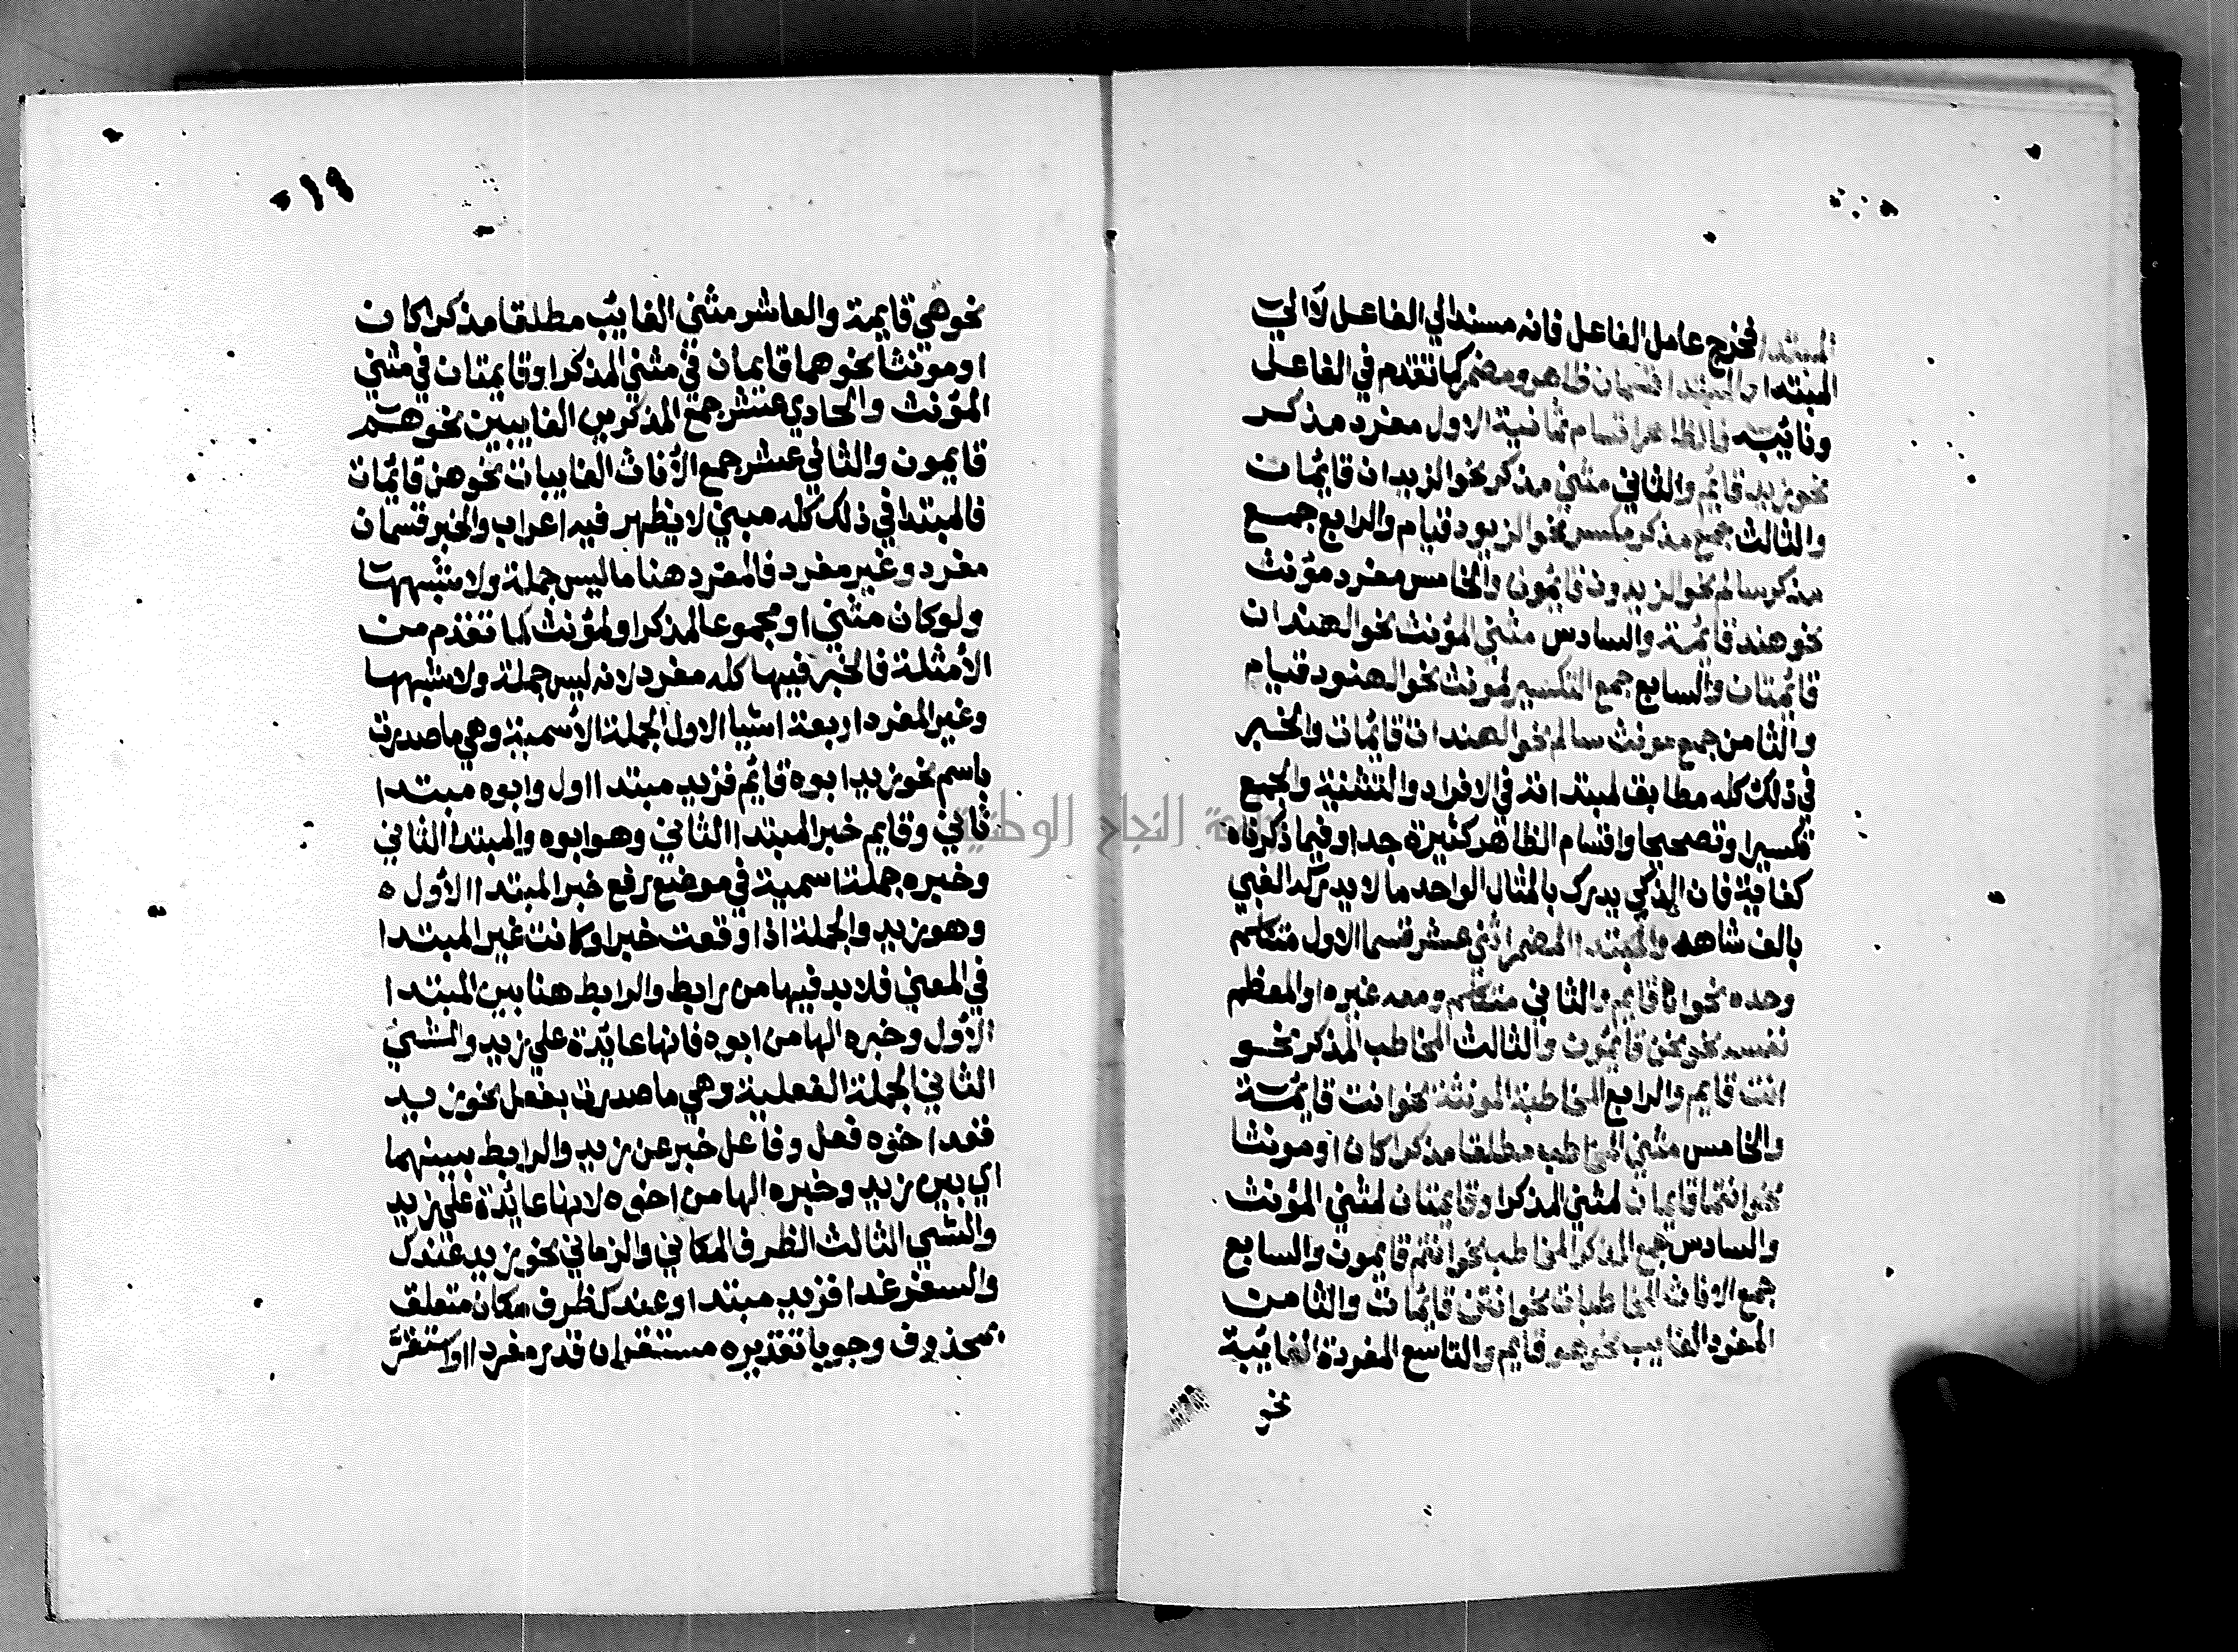 المبتدا فخرج عامل الفاعل فانه مسند الي الفاعل لا الي
المبتدا والمبتدا قسمان ظاهر ومضمر كما تقدم في الفاعل
ونائبه فالظاهر اقسام ثمانية الاول مفرد مذكر
نحو زيد قائم والثاني مثني مذكر نحو الزيدان قائمان
والثالث جمع مذكر مكسر نحو الزيود قيام والرابع جمع
مذكر سالم نحو الزيدون قائمون والخامس مفرد مؤنث
نحو هند قائمة والسادس مثني المؤنث نحو الهندان
قائمتان والسابع جمع التكسير لمونث نحو الهنود قيام
والثامن جمع مونث سالم نحو الهندات قائمات والخبر
في ذلك كله مطابق لمبتدائه في الافراد والتثنية والجمع
تكسيرا وتصحيحا واقسام الظاهر كثيرة جدا وفيما ذكرناه
كفاية فان الذكي يدرك بالمثال الواحد ما لا يدركه الغبي
بالف شاهد والمبتدا المضمر اثني عشر قسما الاول متكلم
وحده نحو انا قايم والثاني متكلم ومعه غيره او المعظم
نفسه نحو نحن قائمون والثالث المخاطب المذكر نحو
انت قايم والرابع المخاطبة المونثة نحو انت قايمة
والخامس مثني المخاطب مطلقا مذكرا كان او مونثا
نحو انتما قايمان لمثني المذكر او قايمتان لمثني المؤنث
والسادس جمع المذكر المخاطب نحو انتم قايمون والسابع
جمع الاناث المخاطبات نحو انتن قائمات والثامن
المفرد الغايب نحو هو قايم والتاسع المفردة الغائبة
نحو
١٩
نحو هي قايمة والعاشر مثني الغايب مطلقا مذكرا كان
او مونثا نحو هما قايمان في مثني المذكر او قايمتان في مثني
المؤنث والحادي عشر جمع المذكر من الغايبين نحو هم
قايمون والثاني عشر جمع الأناث الغايبات نحو هن قائمات
فالمبتدا في ذلك كله مبني لا يظهر فيه اعراب والخبر قسمان
مفرد وغير مفرد فالمفرد هنا ما ليس جملة ولا شبهها
ولو كان مثني او مجموعا لمذكر او لمؤنث كما تقدم من
الأمثلة فالخبر فيها كله مفرد لانه ليس جملة ولا شبهها
وغير المفرد اربعة اشيا الاول الجملة الأسمية وهي ما صدرت
باسم نحو زيد ابوه قائم فزيد مبتدا اول وابوه مبتدا
ثاني وقايم خبر المبتدا الثاني وهو ابوه والمبتدا الثاني
وخبره جملة اسمية في موضع رفع خبر المبتدا الأول ه
وهو زيد والجملة اذا وقعت خبرا وكانت غير المبتدا
في المعني فلا بد فيها من رابط والرابط هنا بين المبتدا
الأول وخبره الها من ابوه فانها عايدة علي زيد والشئ
الثاني الجملة الفعلية وهي ما صدرت بفعل نحو زيد
قعد اخوه فعل وفاعل خبر عن زيد والرابط بينهما
اي بين زيد وخبره الها من اخوه لانها عائدة علي زيد
والشي الثالث الظرف المكاني والزماني نحو زيد عندك
والسفر غدا فزيد مبتدا وعندك ظرف مكان متعلق
بمحذوف وجوبا تقديره مستقر ان قدر مفردا او استقرَّ
جامعة النجاح الوطنية